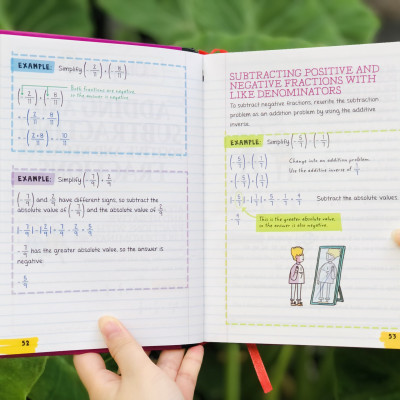 EXAMPLE: Simplify (-2/11) + (-8/11)
(-2/11) + (-8/11) Both fractions are negative,
so the answer is negative.
= -(2/11 + 8/11)
= -(2+8/11) = -10/11
EXAMPLE: Simplify (-7/9) + 2/9
(-7/9) and 2/9 have different signs, so subtract the
absolute value of (-7/9) and the absolute value of 2/9.
|-7/9| - |2/9| = 7/9 - 2/9 = 5/9
-7/9 has the greater absolute value, so the answer is
negative.
-5/9
52
SUBTRACTING POSITIVE AND
NEGATIVE FRACTIONS WITH
LIKE DENOMINATORS
To subtract negative fractions, rewrite the subtraction
problem as an addition problem by using the additive
inverse.
EXAMPLE: Simplify
Change into an addition problem.
Use the additive inverse of
Subtract the absolute values.
This is the greater absolute value,
so the answer is also negative.
53